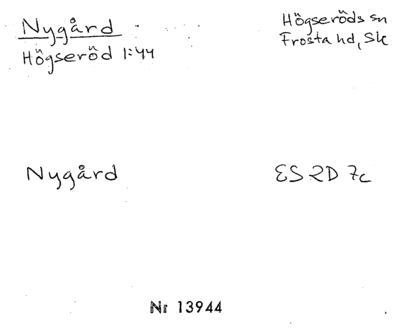 Nygård
Högseröd 1:44
Högseröds sn
Frosta hd, Sk
Nygård
ES 2D 7c
Nr 13944